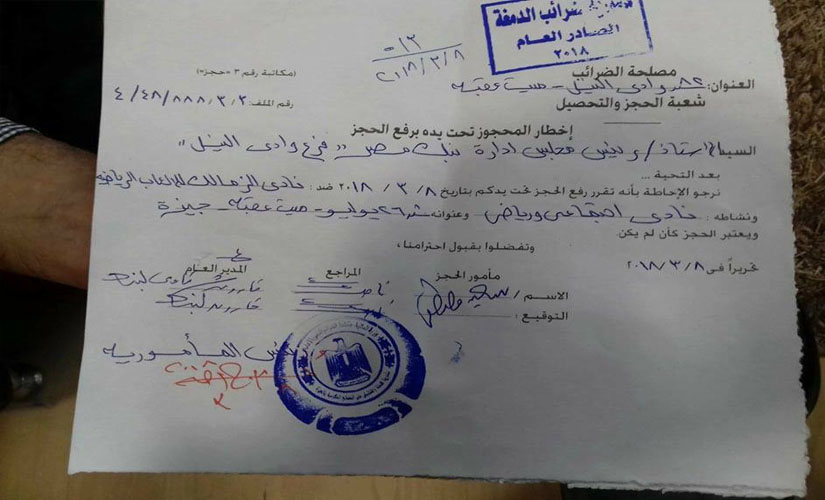 ضرائب الدمغة
الصادر العام
٢٠١٨
٥١٣
٢٠١٨/٣/٨
مصلحة الضرائب
(مكاتبة رقم ٣ «حجز»)
العنوان: ٨٢ ش وادى النيل - ميت عقبه
شعبة الحجز والتحصيل
رقم الملف: ٤/٤٨/٨٨٨/٣/٢
إخطار المحجوز تحت يده برفع الحجز
السيد الاستاذ/ رئيس مجلس ادارة بنك مصر " فرع وادى النيل "
بعد التحية ...
نرجو الإحاطة بأنه تقرر رفع الحجز تحت يدكم بتاريخ ٨/ ٣ / ٢٠١٨ ضد: نادى الزمالك للالعاب الرياضيه
ونشاطه: نادى اجتماعى ورياضى وعنوانه ش ٢٦ يوليو - ميت عقبه - جيزة
ويعتبر الحجز كأن لم يكن
وتفضلوا بقبول احترامنا،
تحريراً فى ٢٠١٨/٣/٨
مأمور الحجز
المراجع
المدير العام
الاسم /
التوقيع:
المأموريه